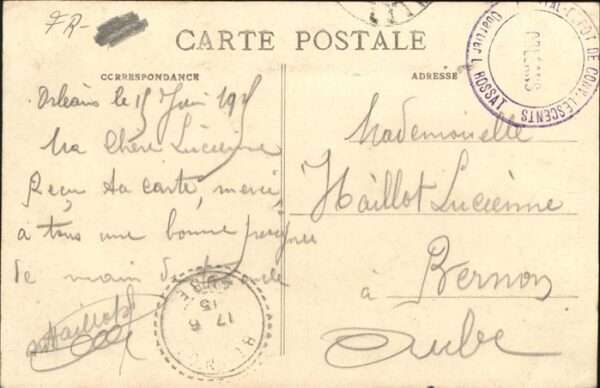 FR-
CARTE POSTALE
CORRESPONDANCE
ADRESSE
HOPITAL-DEPOT DE CONVALESCENTS
ORLEANS
Quartier L ROSSAT
Orléans le 15 Juin 1915
Ma Chère Lucienne
Reçu ta carte, merci,
à tous une bonne poignée
de main de
Haillot
Mademoiselle
Haillot Lucienne
à Bernon
Aube
17 6
15
AUBE